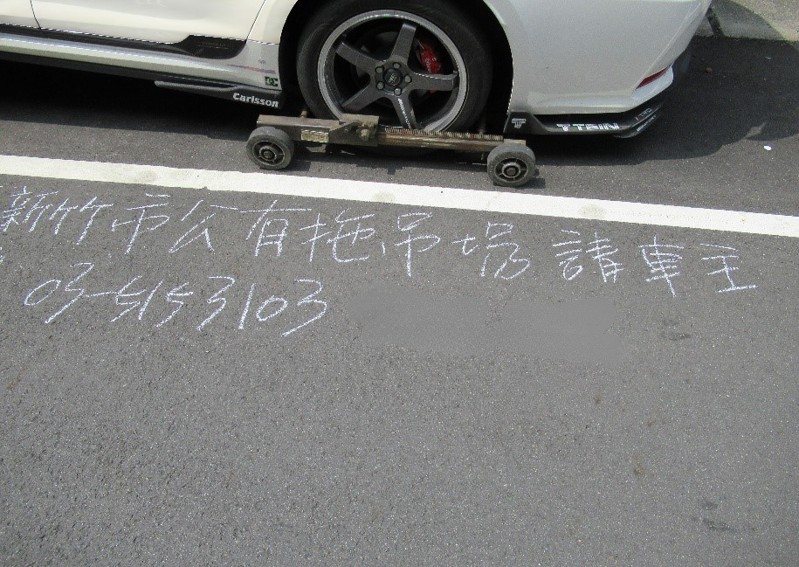 Carlsson
T TRIN
新竹市公有拖吊場 請車主
03-5153103